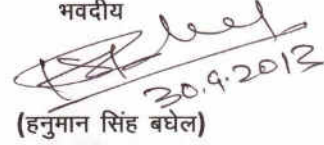 भवदीय
30.9.2013
(हनुमान सिंह बघेल)